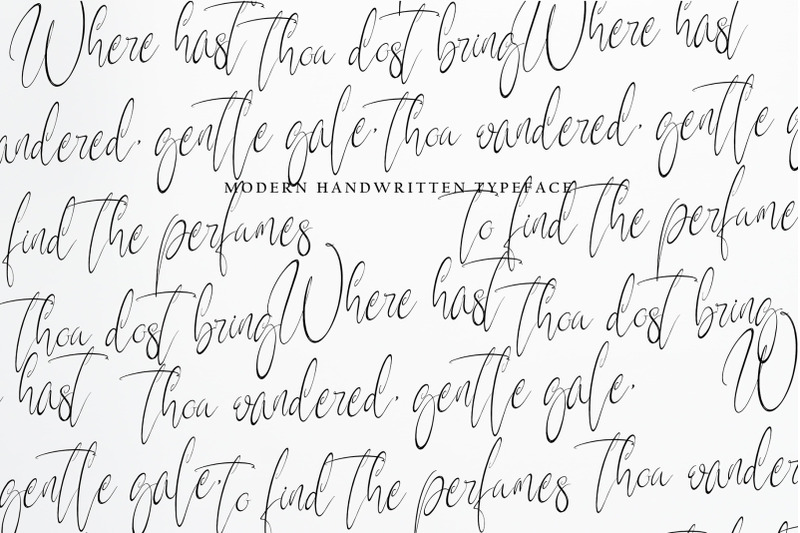 Where hast thou dost bring Where hast
andered. gentle gale. thou wandered. gentle g
MODERN HANDWRITTEN TYPEFACE
find the perfumes to find the perfume
thou dost bring Where hast thou dost bring
hast thou wandered. gentle gale. W
gentle gale. to find the perfumes thou wander